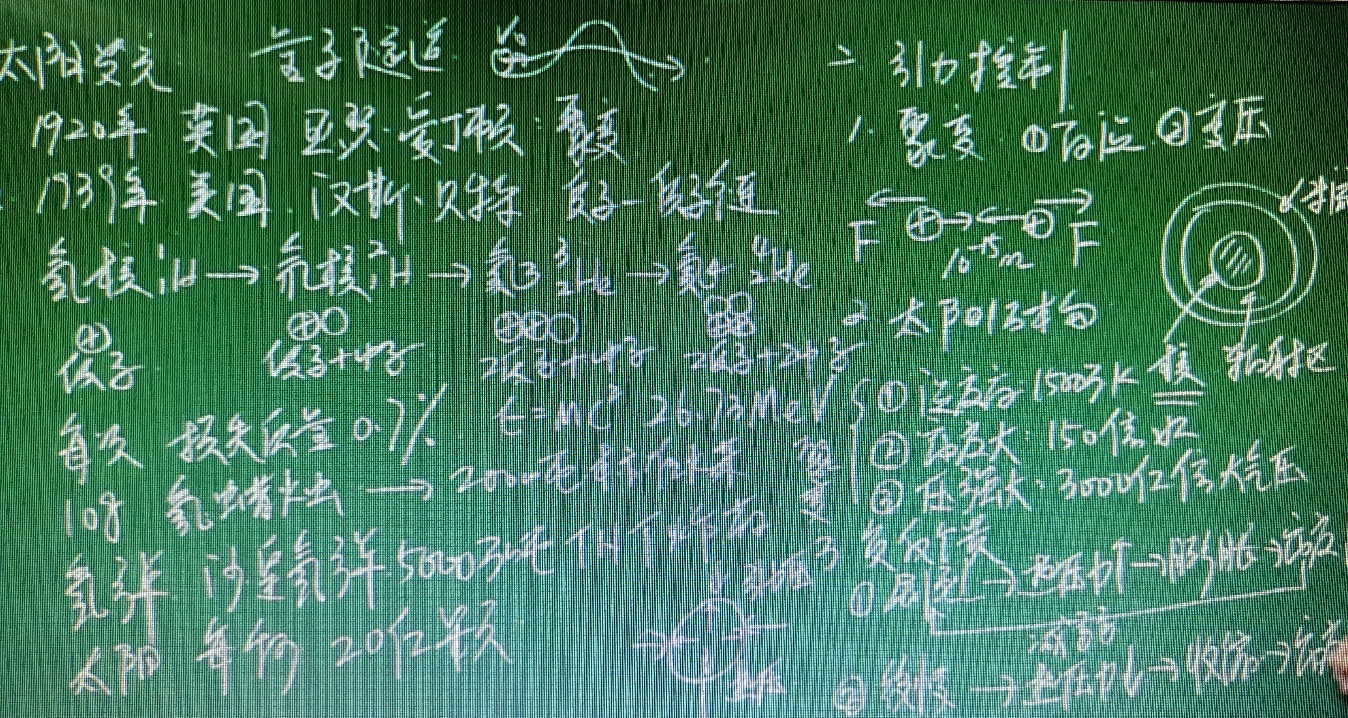 太阳发光 量子隧道
1920年 英国 亚瑟·爱丁顿:聚变
1939年 美国 汉斯·贝特 质子-质子链
氢核 ¹₁H → 氘核 ²₁H → 氦3 ³₂He → 氦4 ⁴₂He
质子 质子+中子 2质子+中子 2质子+2中子
每次 损失质量 0.7% E=MC² 26.73MeV
10g 氢蜡烛 → 2000吨
氢弹 沙皇氢弹 5000万吨TNT
太阳 每秒 20亿颗
引力
二 引力控制
1. 聚变 ①高温 ②高压
F F
10⁻¹⁵m
2 太阳结构
核 辐射区
聚变
① 温度高:1500万K
② 密度大:150倍水
③ 压强大:3000亿倍大气压
3 负反馈
① 剧烈 → 热压力↑ → 膨胀 → 密度
减弱
② 缓慢 → 热压力↓ → 收缩 →